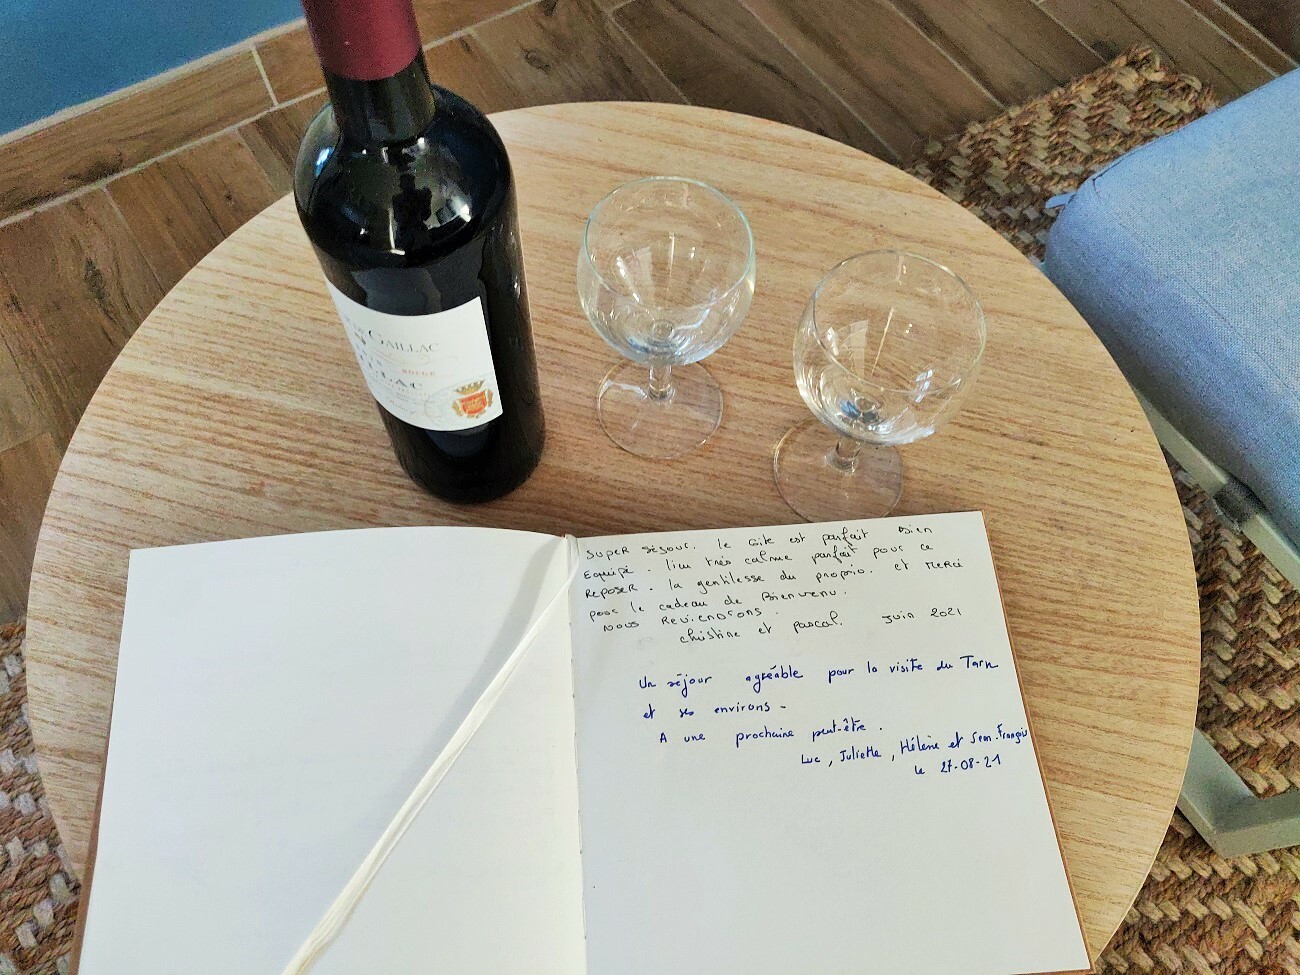 GAILLAC
ROUGE
super séjour. le Gite est parfait Bien
Equipé. lieu très calme parfait pour ce
Reposer. la gentilesse du proprio. et Merci
pour le cadeau de Bienvenu.
NOUS REVIENDRONS.
christine et pascal. Juin 2021
Un séjour agréable pour la visite du Tarn
et ses environs -
A une prochaine peut-être.
Luc, Juliette, Hélène et Jean.François
le 27-08-21